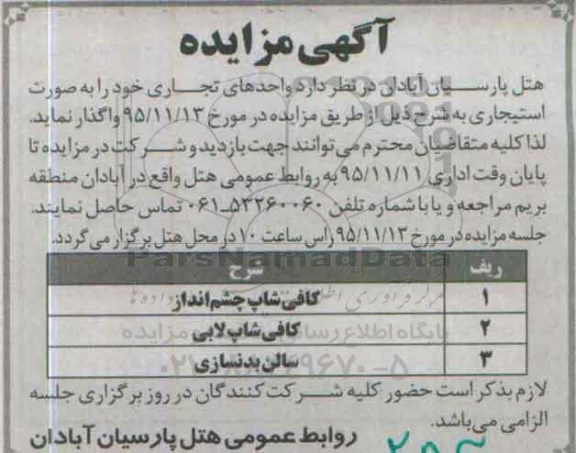 آگهی مزایده
هتل پارسیان آبادان در نظر دارد واحدهای تجاری خود را به صورت
استیجاری به شرح ذیل از طریق مزایده در مورخ ۹۵/۱۱/۱۳ واگذار نماید.
لذا کلیه متقاضیان محترم می‌توانند جهت بازدید و شرکت در مزایده تا
پایان وقت اداری ۹۵/۱۱/۱۱ به روابط عمومی هتل واقع در آبادان منطقه
بریم مراجعه و یا با شماره تلفن ۵۳۲۶۰۰۶۰-۰۶۱ تماس حاصل نمایند.
جلسه مزایده در مورخ ۹۵/۱۱/۱۳ راس ساعت ۱۰ در محل هتل برگزار می گردد.
ParsNamadData
ریف شرح
۱ کافی شاپ چشم انداز
۲ کافی شاپ لابی
۳ سالن بدنسازی
لازم بذکر است حضور کلیه شرکت کنندگان در روز برگزاری جلسه
الزامی می‌باشد.
روابط عمومی هتل پارسیان آبادان